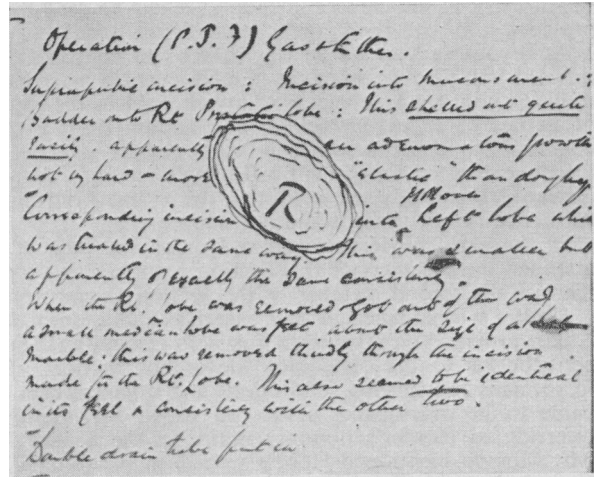 Operation (P.J.F) Gas & Ether.
Suprapubic incision : Incision into mucous memb. of
Bladder onto Rt. Prostatic lobe : This shelled out quite
easily. apparently an adenomatous growth
not vy hard - more "elastic" than doughy
Corresponding incision into Left lobe which
was treated in the same way. This was smaller but
apparently of exactly the same consistency.
When the Rt. lobe was removed & got out of the way
a small median lobe was felt about the size of a
marble. this was removed thirdly through the incision
made for the Rt. Lobe. This also seemed to be identical
in its feel & consistency with the other two.
Double drain tube put in
R